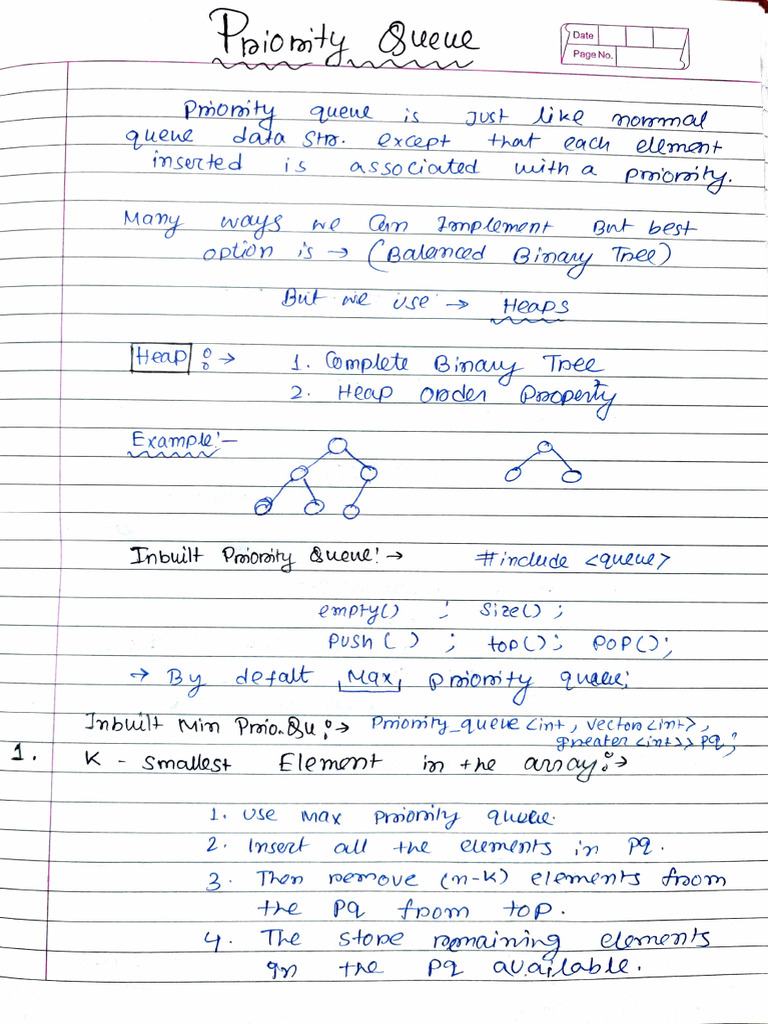 Priority Queue
Date
Page No.
Priority queue is just like normal
queue data str. except that each element
inserted is associated with a priority.
Many ways we can implement But best
option is → (Balanced Binary Tree)
But we use → Heaps
Heap :→ 1. Complete Binary Tree
2. Heap order Property
Example:-
Inbuilt Priority Queue:→ #include <queue>
empty() ; size() ;
push( ) ; top(); pop();
→ By defalt Max priority queue;
Inbuilt Min Prio.Qu :→ Priority_queue<int, vector<int>,
greater<int>> pq;
1. K - smallest Element in the array:→
1. Use max priority queue.
2. Insert all the elements in pq.
3. Then remove (n-k) elements from
the pq from top.
4. The store remaining elements
in the pq available.